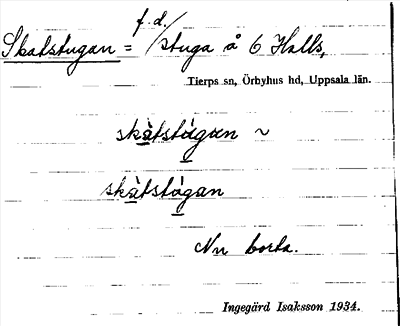 f.d.
Skatstugan = /stuga å 6 Halls,
Tierps sn, Örbyhus hd, Uppsala län.
skàtstùgan ~
skàtstùgan
Nu borta.
Ingegärd Isaksson 1934.